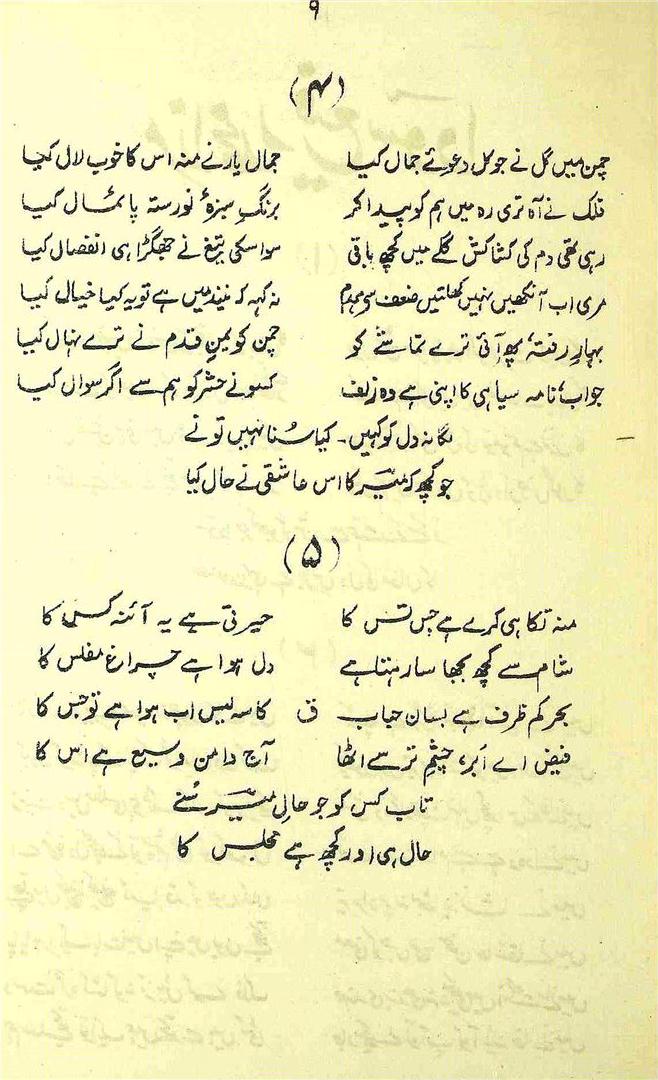 ۹
(۴)
چمن میں گل نے جو کل دعوئے جمال کیا جمال یار نے منہ اس کا خوب لال کیا
فلک نے آہ تری رہ میں ہم کو پیدا کر برنگِ سبزۂ نورستہ پائمال کیا
رہی تھی دم کی کشاکش گلے میں کچھ باقی سو اسکی تیغ نے جھگڑا ہی انفصال کیا
مری اب آنکھیں نہیں کھلتیں ضعف سے ہمدم نہ کہہ کہ نیند میں ہے تو یہ کیا خیال کیا
بہارِ رفتہ پھر آئی ترے تماشے کو چمن کو یمنِ قدم نے ترے نہال کیا
جواب نامہ سیاہی کا اپنی ہے وہ زلف کسو نے حشر کو ہم سے اگر سوال کیا
لگا نہ دل کو کہیں۔ کیا سُنا نہیں تو نے
جو کچھ کہ میرؔ کا اس عاشقی نے حال کیا
(۵)
منہ تکا ہی کرے ہے جس تس کا حیرتی ہے یہ آئنہ کس کا
شام سے کچھ بجھا سا رہتا ہے دل ہوا ہے چراغ مفلس کا
بحر کم ظرف ہے بسان حباب ق کاسہ لیس اب ہوا ہے تو جس کا
فیض اے اَبر، چشمِ تر سے اٹھا آج دامن وسیع ہے اس کا
تاب کس کو جو حالِ میرؔ سُنے
حال ہی اور کچھ ہے مجلس کا